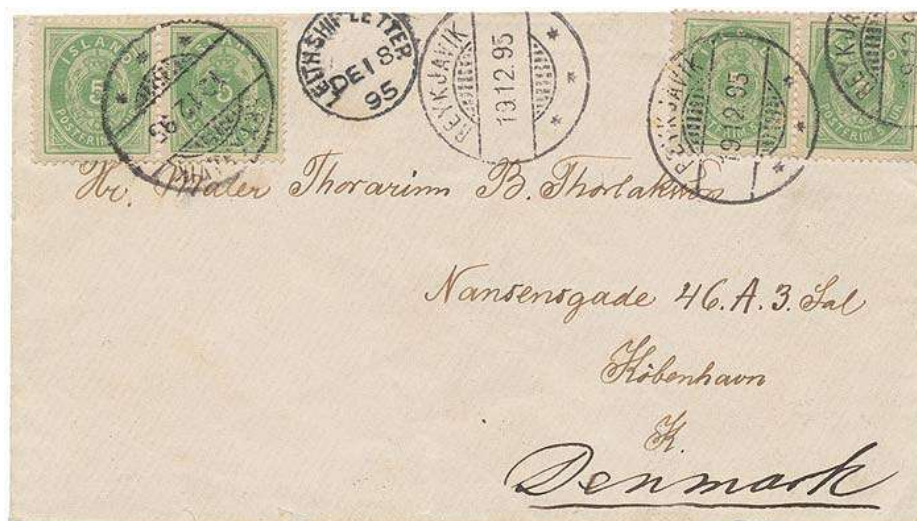 ISLAND
5
ISLAND
5
LEITH SHIP LETTER
DE 18
95
REYKJAVIK
19.12.95
REYKJAVIK
19.12.95
REYKJAVIK
Hr. Maler Thorarinn B. Thorlaksson
Nansensgade 46. A. 3. Sal
København
K.
Denmark